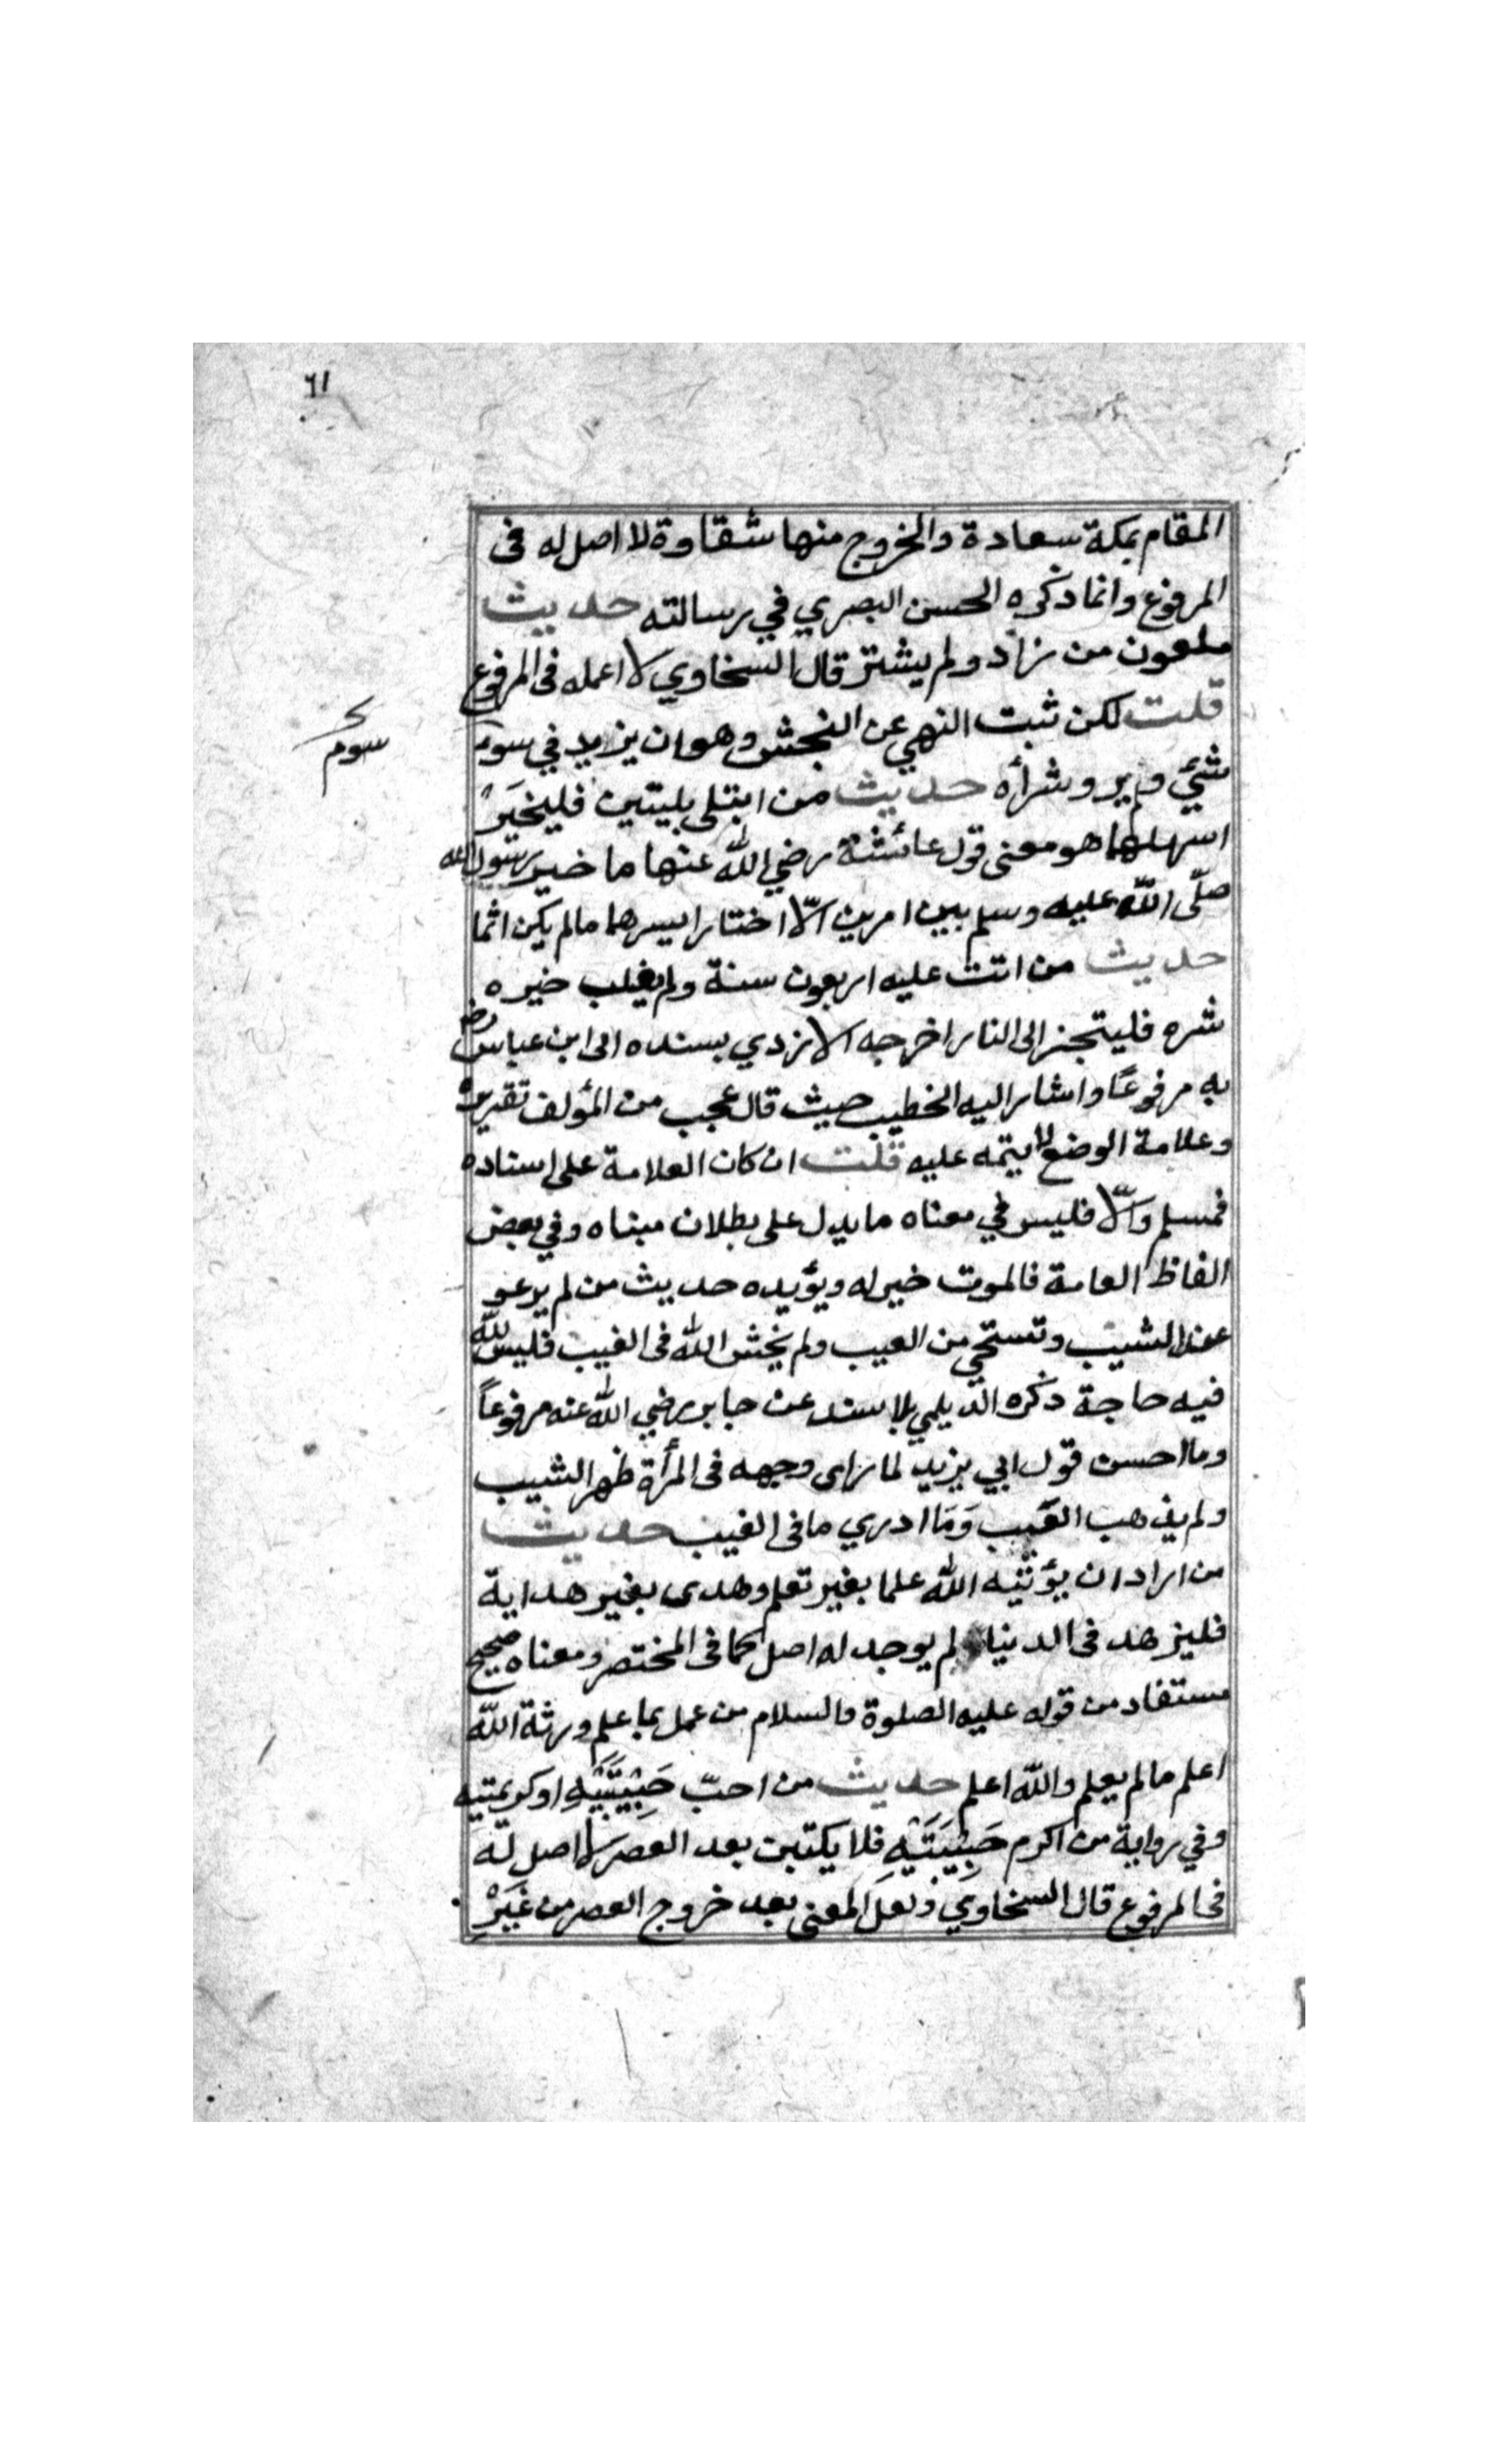 ٦١
المقام بمكة سعادة والخروج منها شقاوة لا اصل له فى
المرفوع وانما ذكره الحسن البصري في رسالته حديث
ملعون من زاد ولم يشتر قال السخاوي لا اعمله فى المرفوع
قلت لكن ثبت النهي عن النجش وهو ان يزيد في سوم
سوم
شئ ولم يرد شرأه حديث من ابتلى بليتين فليخير
اسهلهما هو معنى قول عائشة رضي الله عنها ما خير رسول الله
صلّى الله عليه وسلم بين امرين الّا اختار ايسرهما مالم يكن اثما
حديث من اتت عليه اربعون سنة ولم يغلب خيره
شره فليتجهز الى النار اخرجه الازدي بسنده الى ابن عباس رضه
به مرفوعًا واشار اليه الخطيب حيث قال عجب من المؤلف تقريره
وعلامة الوضع لا يتمه عليه قلت ان كان العلامة على اسناده
فمسلم والّا فليس في معناه ما يدل على بطلان مبناه وفي بعض
الفاظ العامة فالموت خير له ويؤيده حديث من لم يرعو
عند الشيب وتستحي من العيب ولم يخش الله فى الغيب فليس لله
فيه حاجة ذكره الديلمي بلا سند عن جابر رضي الله عنه مرفوعاً
وما احسن قول ابي يزيد لما راى وجهه فى المرأة ظهر الشيب
ولم يذهب العَيب وَمَا ادري ما فى الغيب حديث
من اراد ان يؤتيه الله علما بغير تعلم وهدى بغير هداية
فليزهد فى الدنيا لم يوجد له اصل كما فى المختصر ومعناه صحيح
مستفاد من قوله عليه الصلوة والسلام من عمل بما علم ورثة الله
اعلم مالم يعلم والله اعلم حديث من احبّ حَبِيْبَتَيْهِ او كريمتيه
وفي رواية من اكرم حَبِيْبَتَيْهِ فلا يكتبن بعد العصر لا اصل له
فى المرفوع قال السخاوي ولعلَ المعنى بعد خروج العصر من غَيَرْ